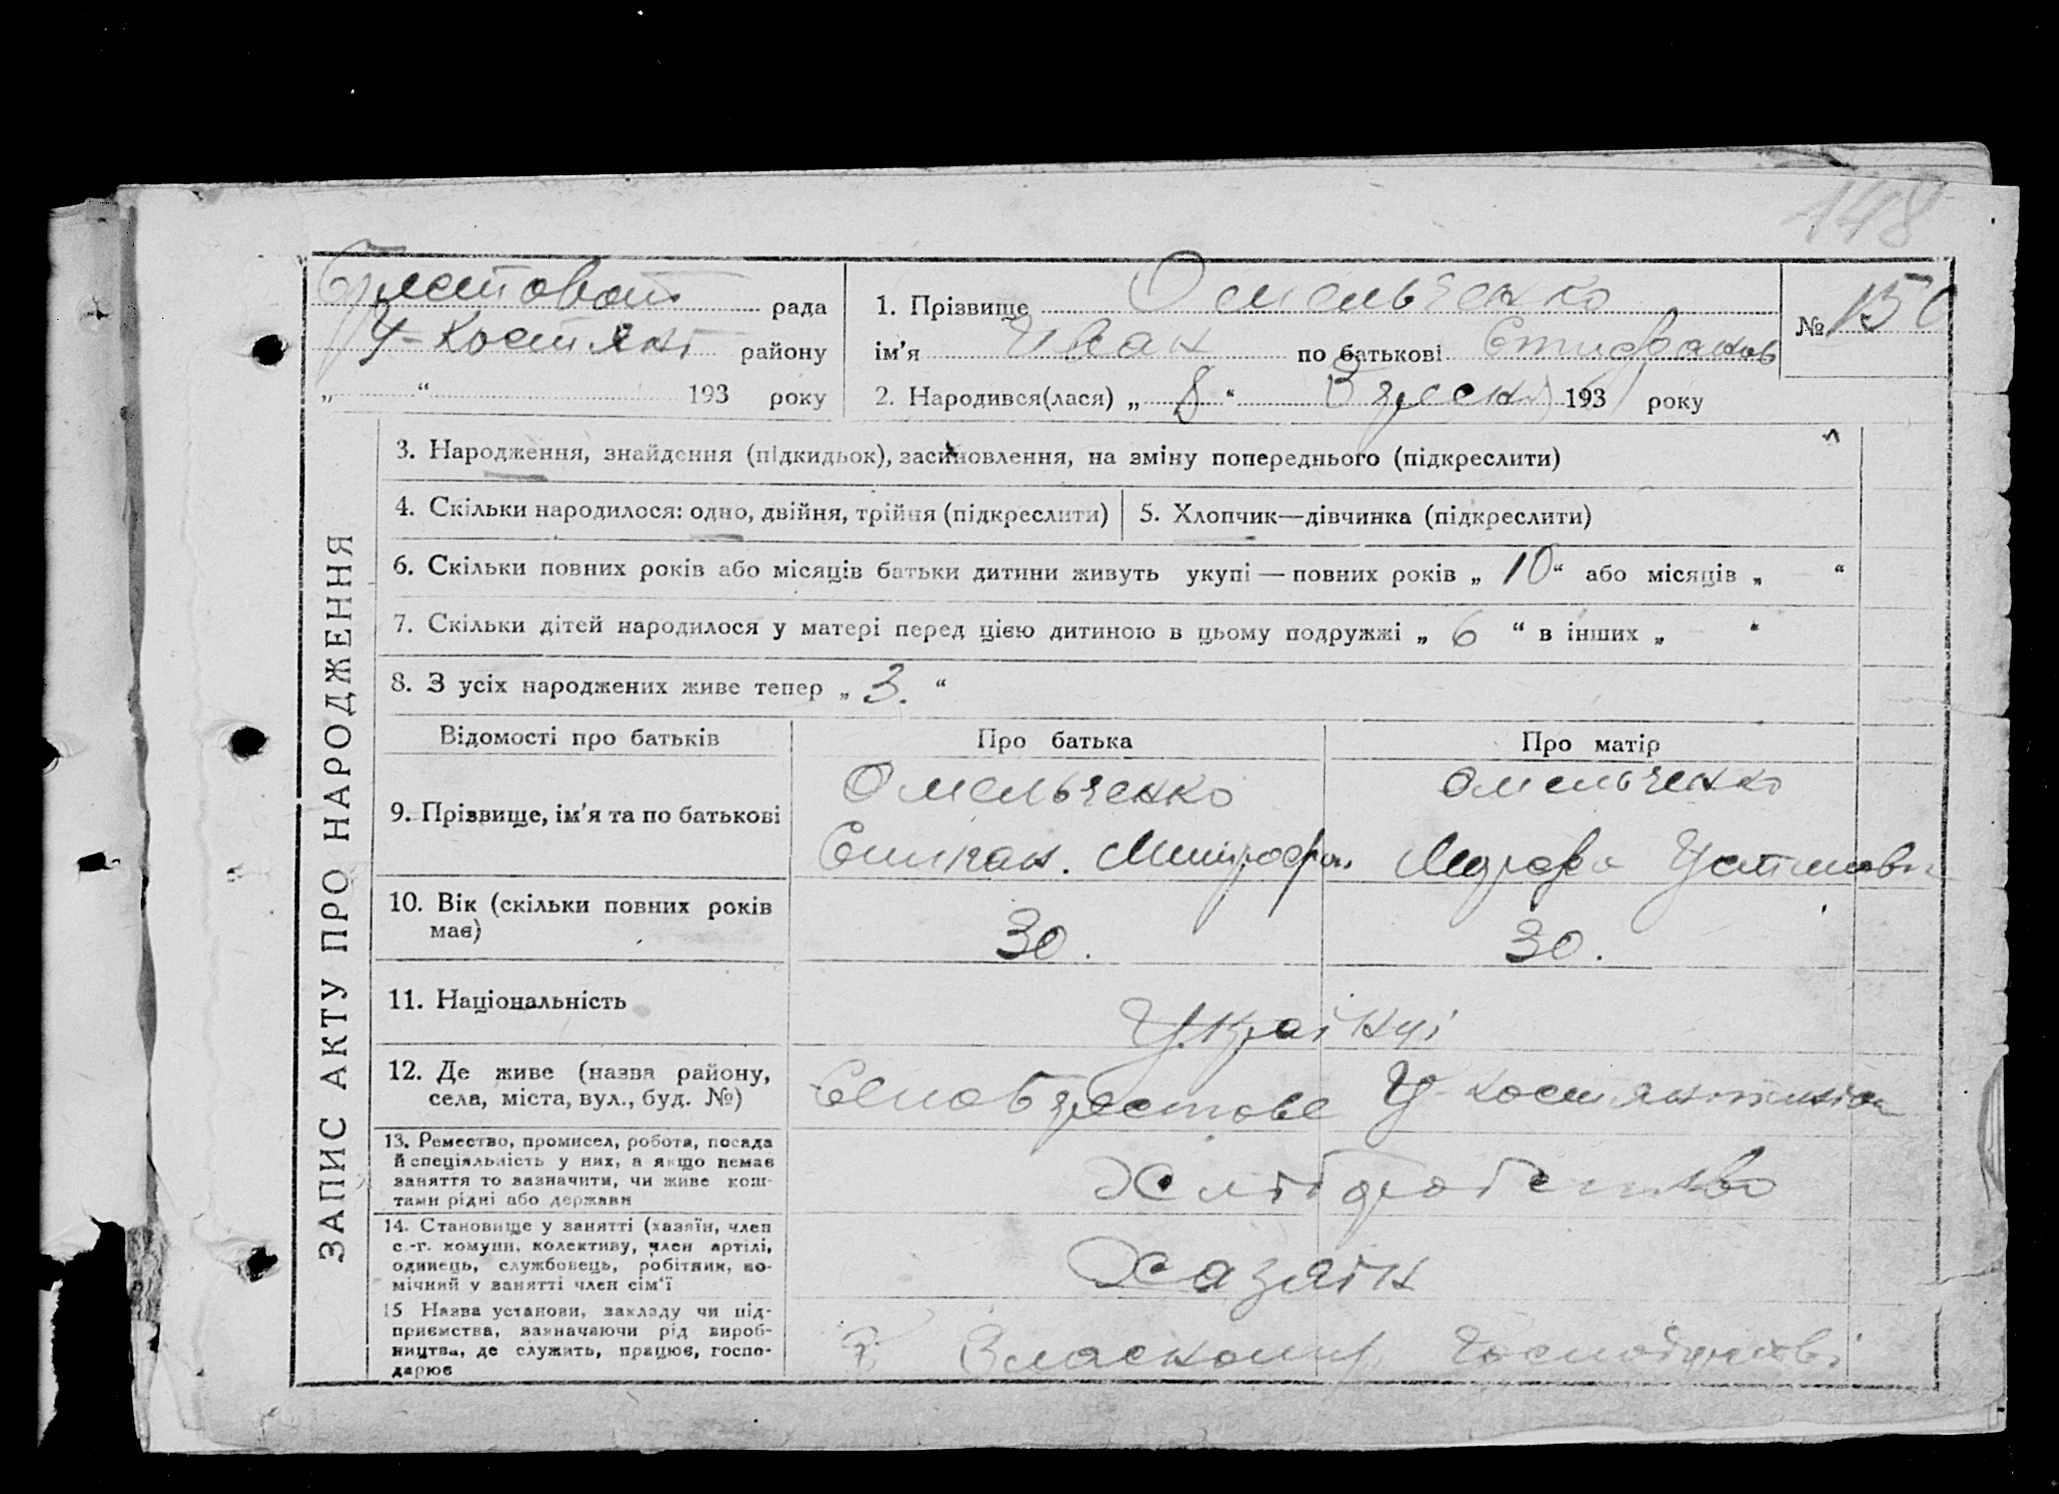 148
рада
У-Костянт району
" " 193 року
1. Прізвище Омельченко
ім'я Иван по батькові
2. Народився(лася) „ 8 " Вересня 193 року
№ 150
ЗАПИС АКТУ ПРО НАРОДЖЕННЯ
3. Народження, знайдення (підкидьок), засиновлення, на зміну попереднього (підкреслити)
4. Скільки народилося: одно, двійня, трійня (підкреслити)
5. Хлопчик—дівчинка (підкреслити)
6. Скільки повних років або місяців батьки дитини живуть укупі — повних років „ 10 “ або місяців „ “
7. Скільки дітей народилося у матері перед цією дитиною в цьому подружжі „ 6 “ в інших „ “
8. З усіх народжених живе тепер „ 3. “
Відомості про батьків
Про батька
Про матір
9. Прізвище, ім'я та по батькові
Омельченко
Омельченко
10. Вік (скільки повних років
має)
30.
30.
11. Національність
Українці
12. Де живе (назва району,
села, міста, вул., буд. №)
13. Ремество, промисел, робота, посада
й спеціяльність у них, а якщо немає
заняття то зазначити, чи живе кош-
тами рідні або держави
Хліборобство
14. Становище у занятті (хазяїн, член
с.-г. комуни, колективу, член артілі,
одинець, службовець, робітник, по-
мічний у занятті член сім'ї
Хазяїн
15 Назва установи, закладу чи під-
приємства, зазначаючи рід вироб-
ництва, де служить, працює, госпо-
дарює
Власному Господарстві